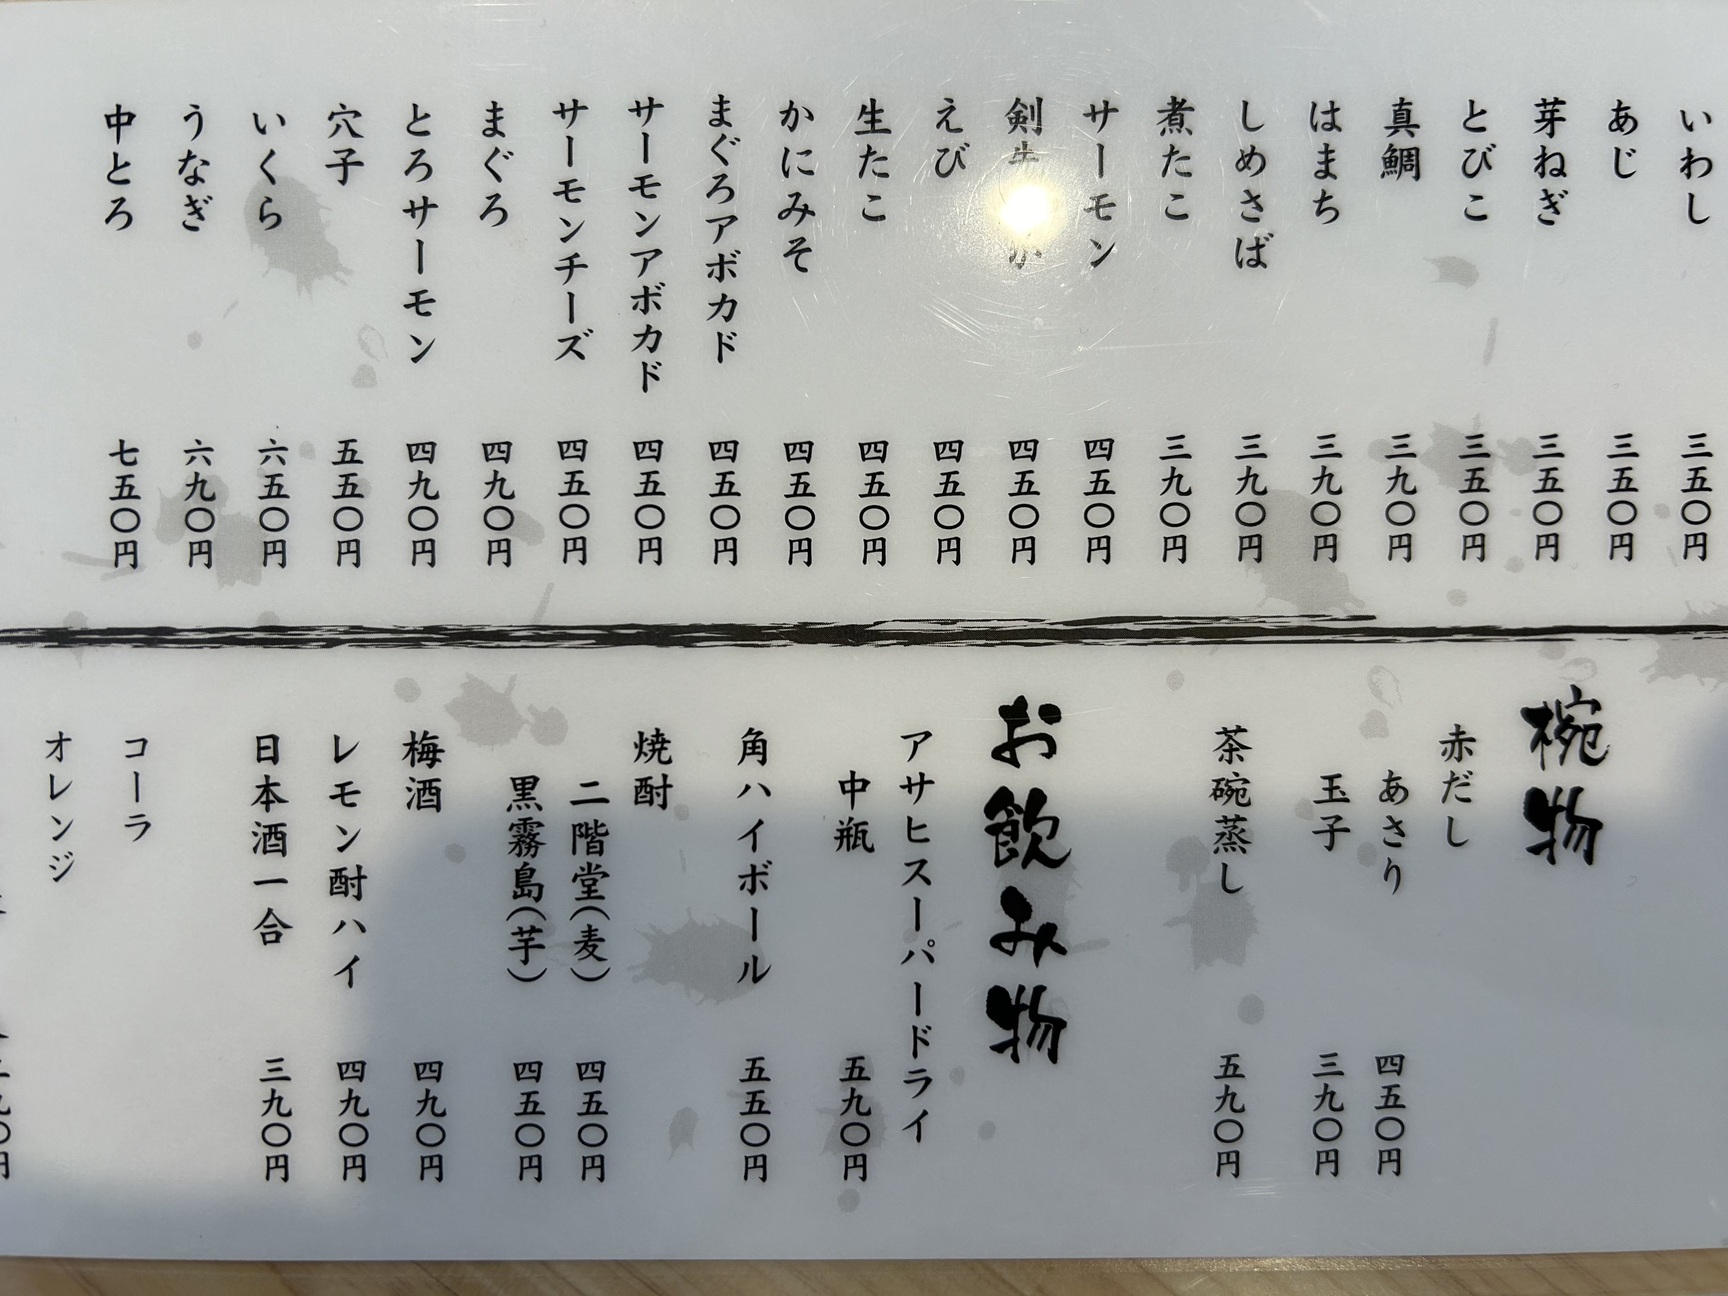 いわし 三五〇円
あじ 三五〇円
芽ねぎ 三五〇円
とびこ 三五〇円
真鯛 三九〇円
はまち 三九〇円
しめさば 三九〇円
煮たこ 三九〇円
サーモン 四五〇円
剣 四五〇円
えび 四五〇円
生たこ 四五〇円
かにみそ 四五〇円
まぐろアボカド 四五〇円
サーモンアボカド 四五〇円
サーモンチーズ 四五〇円
まぐろ 四九〇円
とろサーモン 四九〇円
穴子 五五〇円
いくら 六五〇円
うなぎ 六九〇円
中とろ 七五〇円
椀物
赤だし
あさり 四五〇円
玉子 三九〇円
茶碗蒸し 五九〇円
お飲み物
アサヒスーパードライ
中瓶 五九〇円
角ハイボール 五五〇円
焼酎
二階堂(麦) 四五〇円
黒霧島(芋) 四五〇円
梅酒 四九〇円
レモン酎ハイ 四九〇円
日本酒一合 三九〇円
コーラ
オレンジ